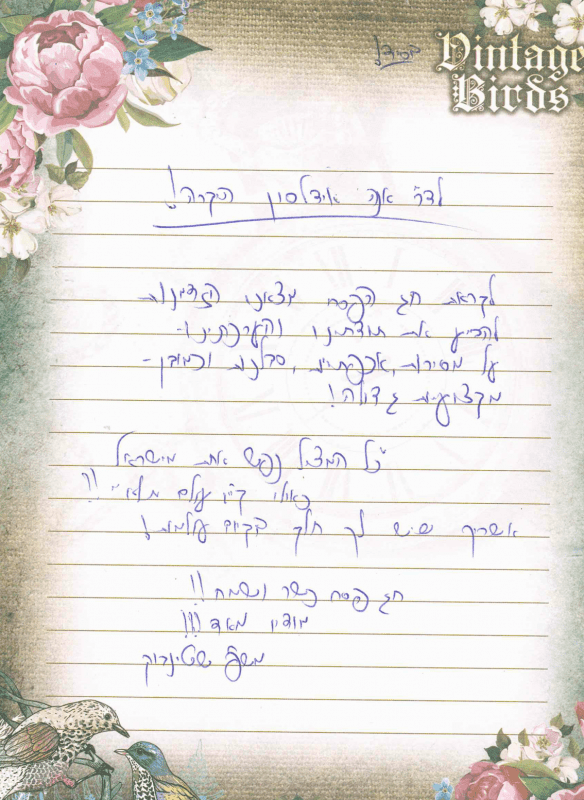 בס"ד
Vintage
Birds
לדר' אנה אידלסון היקרה!
לקראת חג הפסח מצאנו הזדמנות
להביע את תודתינו והערכתינו -
על מסירות, אכפתיות, סבלנות וכמובן -
מקצועיות גדולה!
"כל המציל נפש אחת מישראל
כאילו קיים עולם מלא" !!
אשריך שיש לך חלק בקיום עולמות!
חג פסח כשר ושמח!!
מודים מאד!!!
משפ'